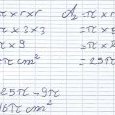 π × r × r    A₂ = π × r
π × 3 × 3    = π ×
π × 9    = π ×
π cm²    = 25π
25π - 9π
16π cm²